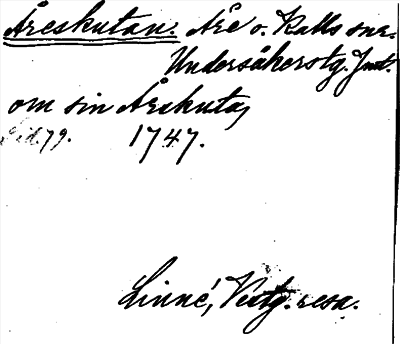 Åreskutan. Åre o. Kalls snr.
Undersåkerstg. Jmtl.
om sin Åreskuta,
Sid. 79. 1747.
Linné, Vestg. resa.